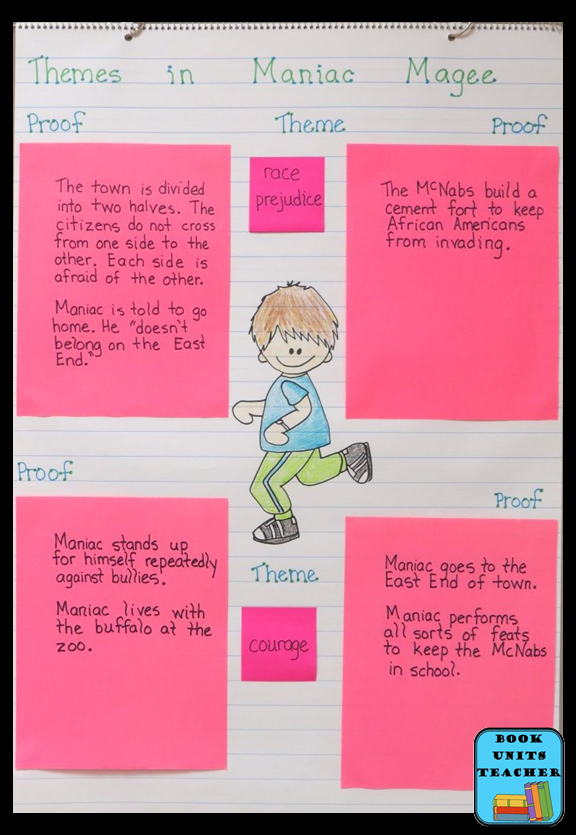 Themes in Maniac Magee
Proof
Theme
Proof
The town is divided
into two halves. The
citizens do not cross
from one side to the
other. Each side is
afraid of the other.
Maniac is told to go
home. He "doesn't
belong on the East
End."
race
prejudice
The McNabs build a
cement fort to keep
African Americans
from invading.
Proof
Proof
Maniac stands up
for himself repeatedly
against bullies.
Maniac lives with
the buffalo at the
zoo.
Theme
courage
Maniac goes to the
East End of town.
Maniac performs
all sorts of feats
to keep the McNabs
in school.
BOOK
UNITS
TEACHER